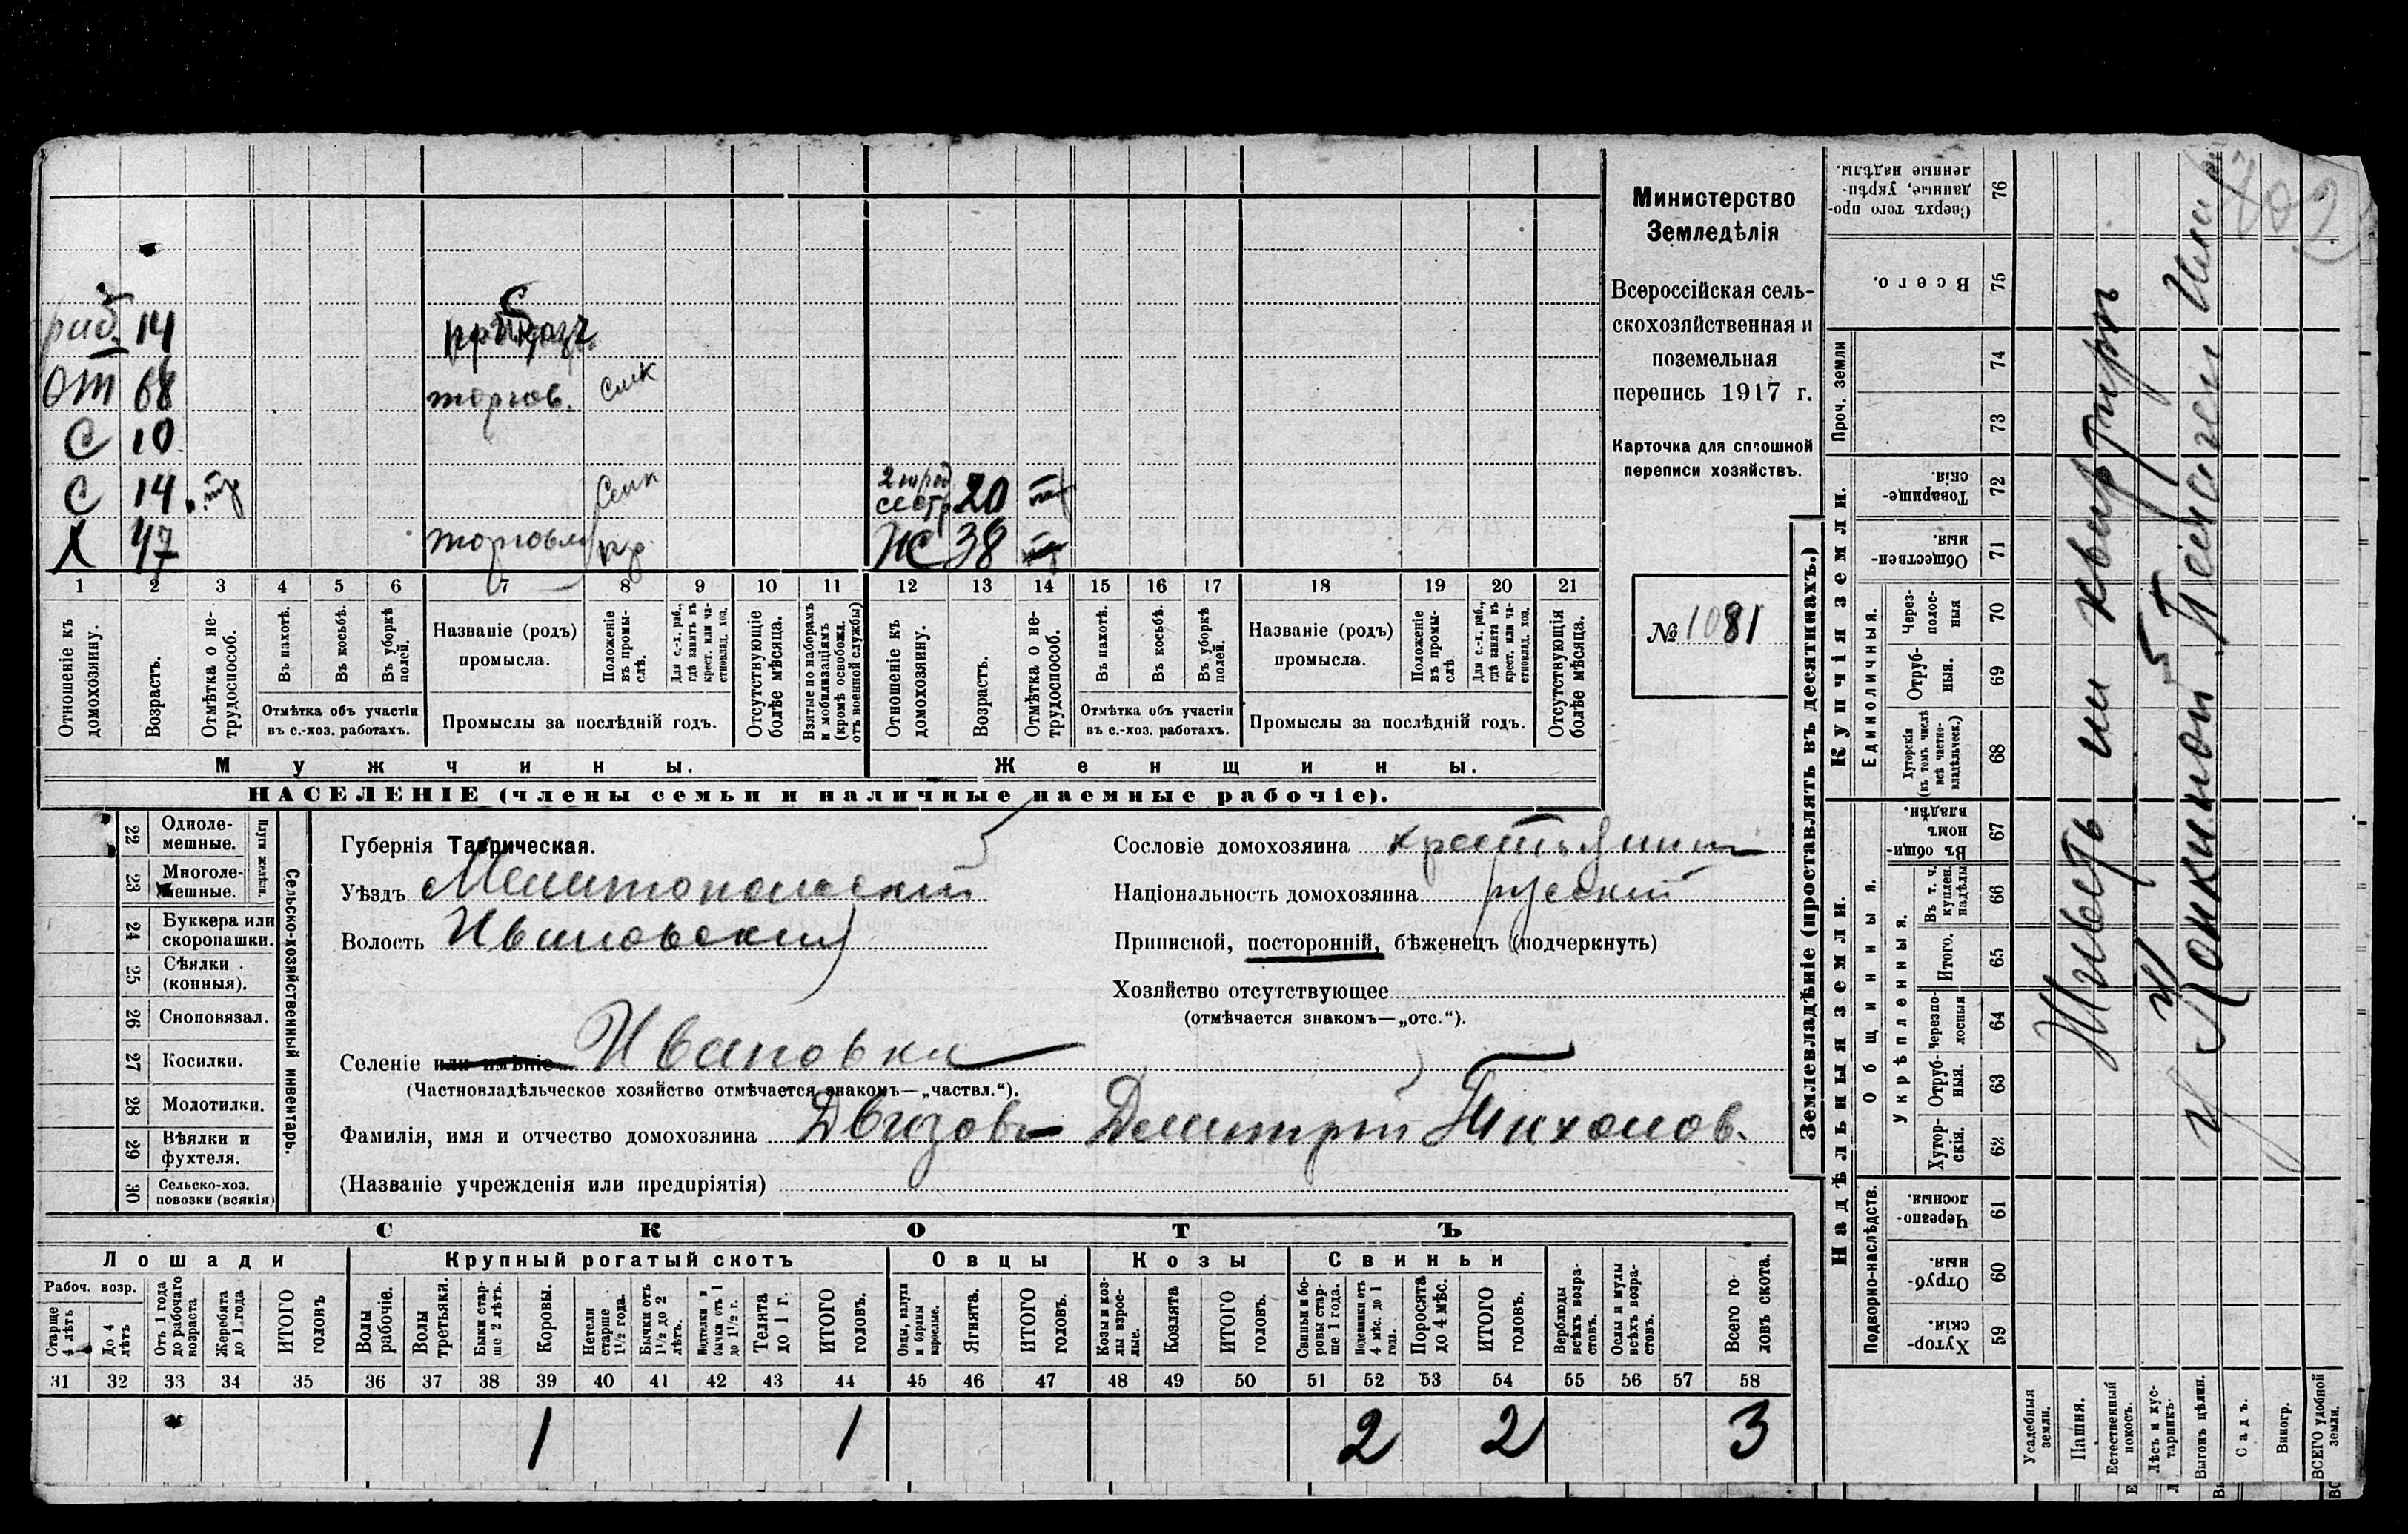 Министерство
Земледѣлія
Всероссійская сель-
скохозяйственная и
поземельная
перепись 1917 г.
Карточка для сплошной
переписи хозяйствъ.
№ 1081
раб. 14
от 68 торгов. Сик
С 10
С 14 Сик 2 юрод сестр 20
Х 47 торговля Ж 38
1 2 3 4 5 6 7 8 9 10 11 12 13 14 15 16 17 18 19 20 21
Отношеніе къ домохозяину.
Возрастъ.
Отмѣтка о не-трудоспособ.
Въ пахотѣ.
Въ косьбѣ.
Въ уборкѣ полей.
Отмѣтка объ участіи въ с.-хоз. работахъ.
Названіе (родъ) промысла.
Положеніе въ промы-слѣ.
Для с.-х. раб., гдѣ занятъ въ крест. или ча-стновлад. хоз.
Промыслы за послѣдній годъ.
Отсутствующіе болѣе мѣсяца.
Взятые по наборамъ и мобилизаціямъ (кромѣ освобожд. отъ военной службы)
Отношеніе къ домохозяину.
Возрастъ.
Отмѣтка о не-трудоспособ.
Въ пахотѣ.
Въ косьбѣ.
Въ уборкѣ полей.
Отмѣтка объ участіи въ с.-хоз. работахъ.
Названіе (родъ) промысла.
Положеніе въ промы-слѣ.
Для с.-х. раб., гдѣ занята въ крест. или ча-стновлад. хоз.
Промыслы за послѣдній годъ.
Отсутствующія болѣе мѣсяца.
Мужчины. Женщины.
НАСЕЛЕНІЕ (члены семьи и наличные наемные рабочіе).
Сельско-хозяйственный инвентарь.
22 Одноле-мешные.
23 Многоле-мешные.
24 Буккера или скоропашки.
25 Сѣялки (конныя).
26 Сноповязал.
27 Косилки.
28 Молотилки.
29 Вѣялки и фухтеля.
30 Сельско-хоз. повозки (всякія)
Губернія Таврическая.
Уѣздъ Мелитопольскій
Волость Ивановская
Селеніе или имѣніе Ивановка
(Частновладѣльческое хозяйство отмѣчается знакомъ—„частвл.“).
Сословіе домохозяина крестьянин
Національность домохозяина русскій
Приписной, посторонній, бѣженецъ (подчеркнуть)
Хозяйство отсутствующее
(отмѣчается знакомъ—„отс.“).
Фамилія, имя и отчество домохозяина Двизовъ Демитрій Тихонов.
(Названіе учрежденія или предпріятія)
СКОТЪ
Лошади Крупный рогатый скотъ Овцы Козы Свиньи
Рабоч. возр.
Старше 4 лѣтъ
До 4 лѣтъ
Отъ 1 года до рабочаго возраста
Жеребята до 1 года
ИТОГО головъ
Волы рабочіе.
Волы третьяки.
Быки стар-ше 2 лѣтъ.
Коровы.
Нетели старше 1½ года.
Бычки отъ 1½ до 2 лѣтъ.
Подтелки и бычки отъ 1 до 1½ г.
Телята до 1 г.
ИТОГО головъ.
Овцы, валухи и бараны взрослые.
Ягнята.
ИТОГО головъ.
Козы и коз-лы взрос-лые.
Козлята
ИТОГО головъ.
Свиньи и бо-ровы стар-ше 1 года.
Подсвинки отъ 4 мѣс. до 1 года.
Поросята до 4 мѣс.
ИТОГО головъ.
Верблюды всѣхъ возра-стовъ.
Ослы и мулы всѣхъ возра-стовъ.
Всего го-ловъ скота.
31 32 33 34 35 36 37 38 39 40 41 42 43 44 45 46 47 48 49 50 51 52 53 54 55 56 57 58
1 1 2 2 3
Землевладѣніе (проставлять въ десятинахъ.)
Надѣльныя земли.
Купчія земли.
Проч. земли
Подворно-наслѣдств.
Общинныя.
Укрѣпленныя.
Единоличныя.
59 Хутор-скія.
60 Отруб-ныя.
61 Черезпо-лосныя.
62 Хутор-скія.
63 Отруб-ныя.
64 Черезпо-лосныя
65 Итого.
66 Въ т. ч. куплен. надѣлы
67 Въ общин-номъ владѣн.
68 Хуторскія (въ томъ числѣ всѣ частно-владѣльческ.)
69 Отруб-ныя.
70 Через-полос-ныя
71 Обществен-ныя.
72 Товарище-скія.
73
74
75 Всего.
76 Сверхъ того про-данные, укрѣп-ленные надѣлы.
Усадебныя земли.
Пашня.
Естественный покосъ.
Лѣсъ и кус-тарникъ.
Выгонъ цѣлин.
Садъ.
Виногр.
ВСЕГО удобной земли.
Живетъ на квартирѣ